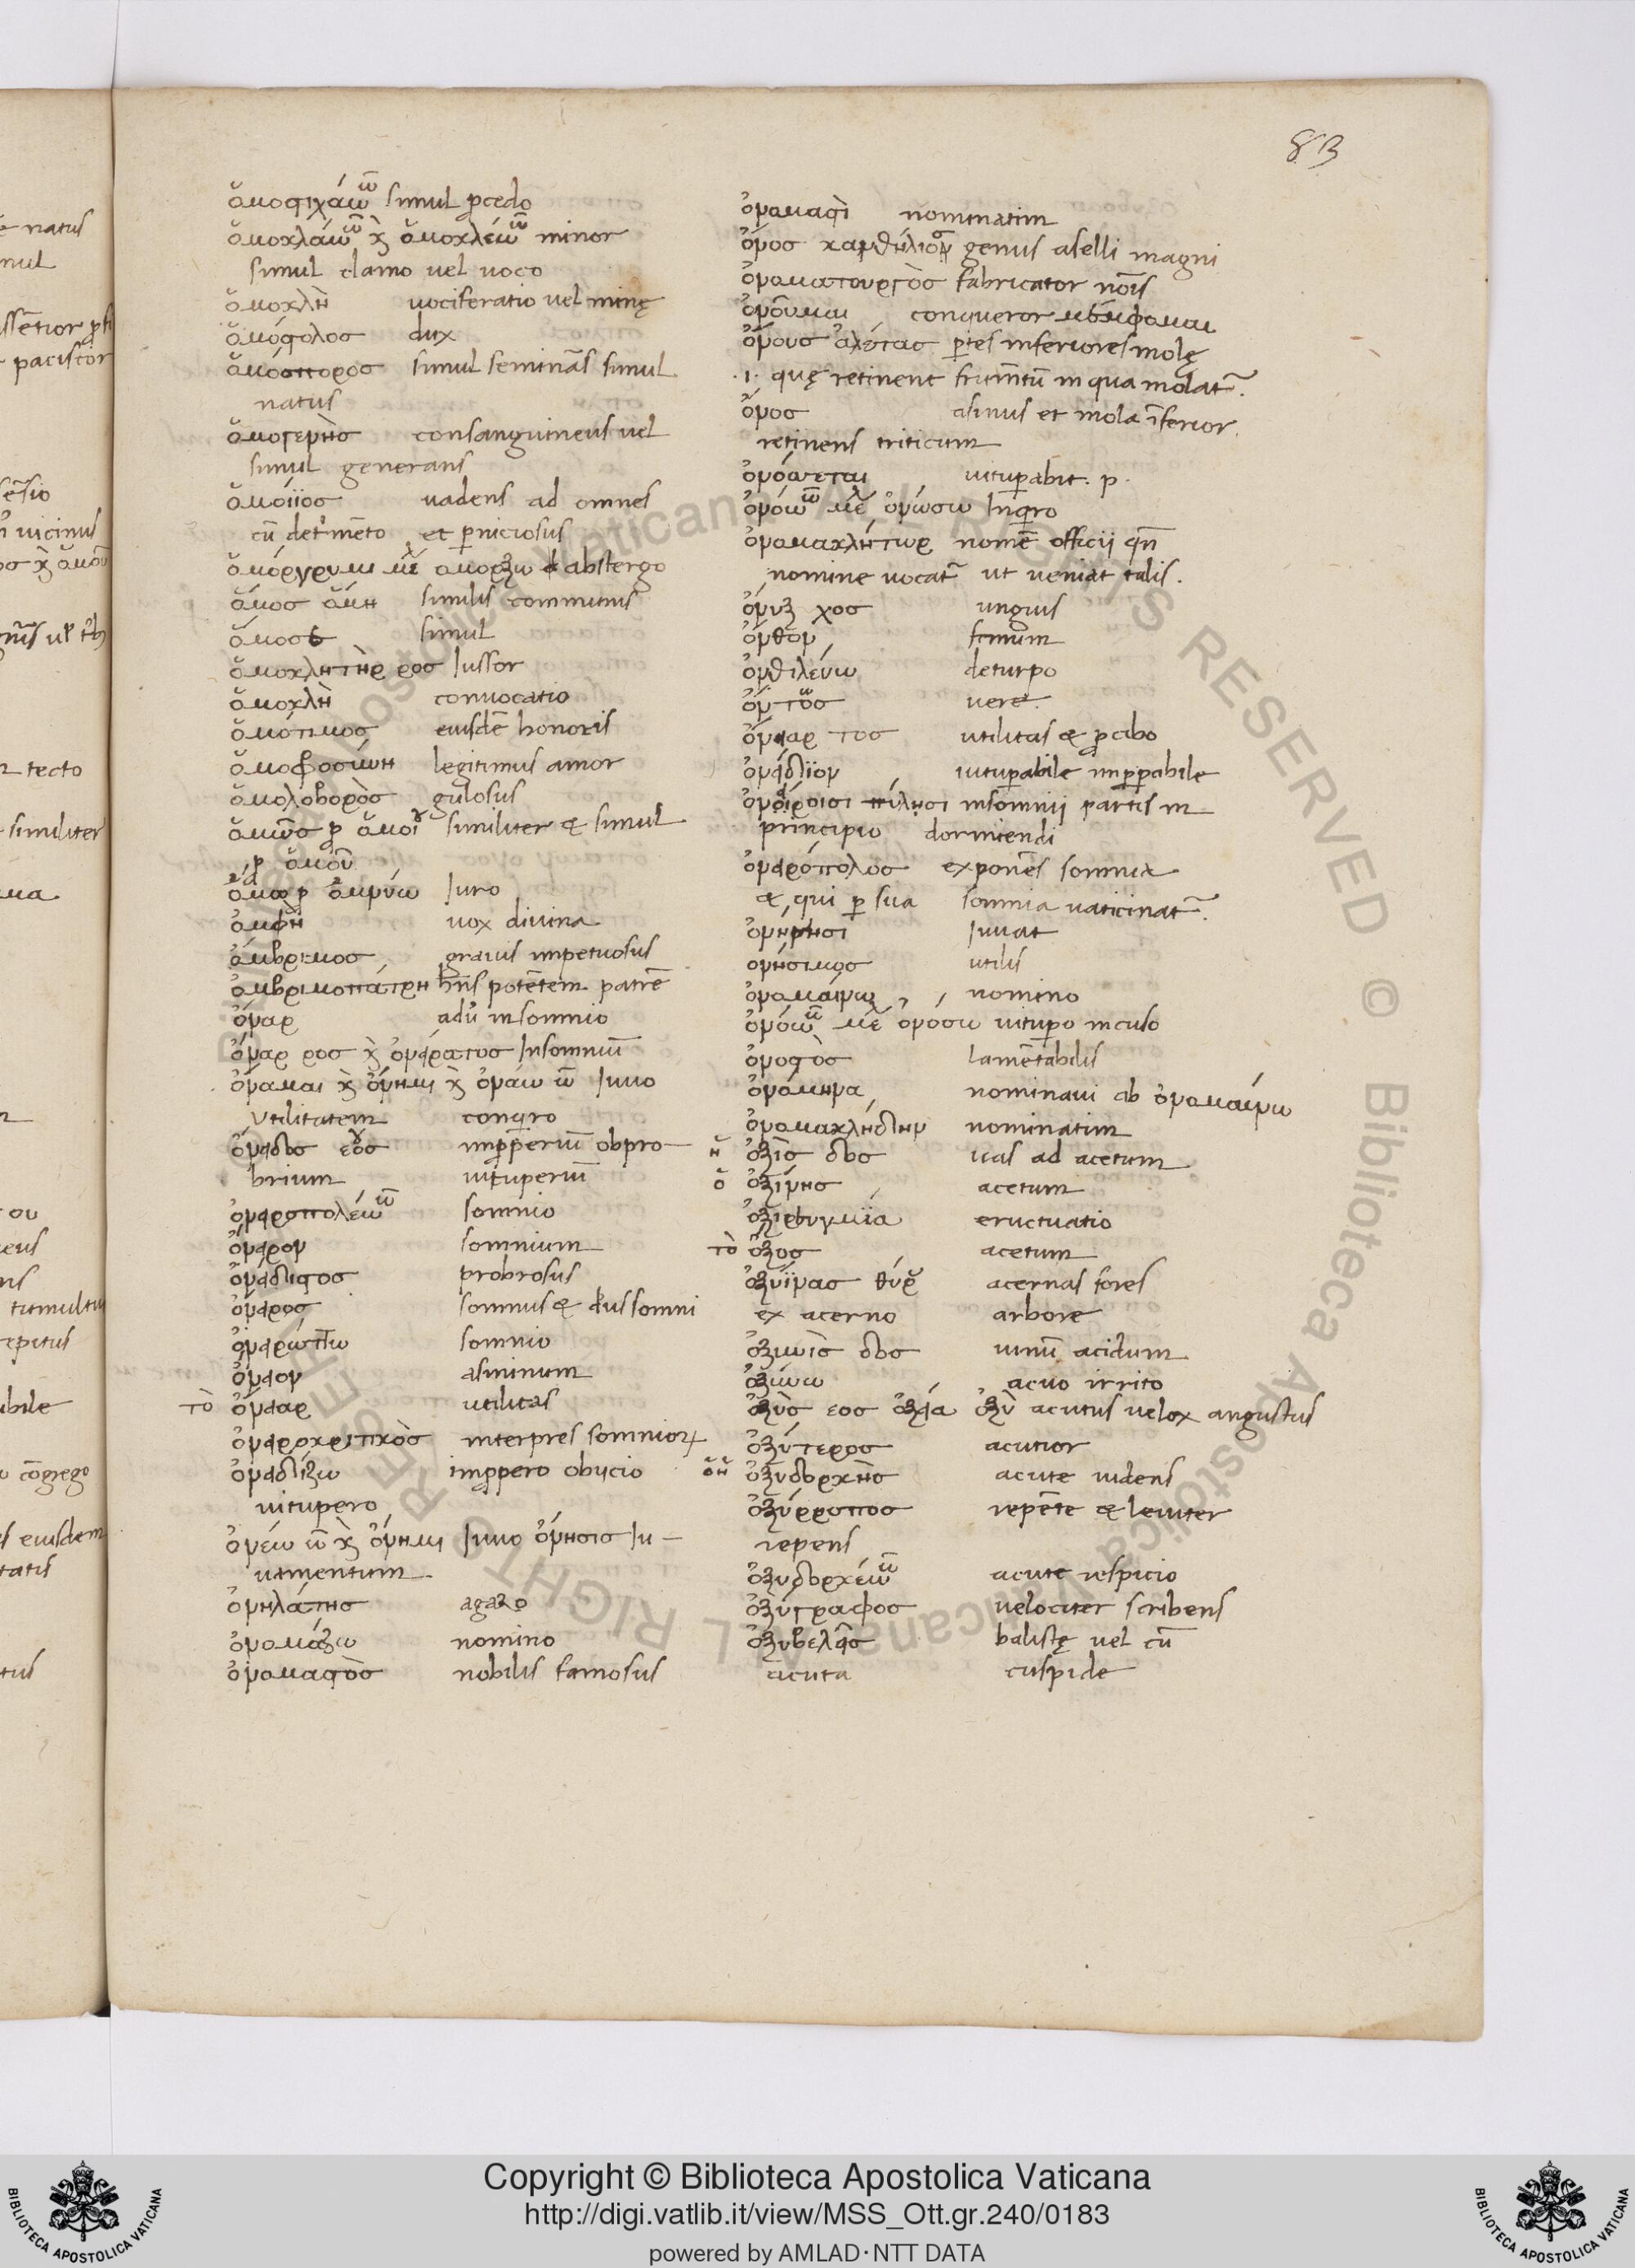 83
ὁμοστιχάω ῶ simul ꝓcedo
ὁμοκλάω ῶ κ̀ ὁμοκλέω ῶ minor
simul clamo uel uoco
ὁμοκλὴ uociferatio uel minę
ὁμόστολος dux
ὁμόσπορος simul seminās simul
natus
ὁμογενὴς consanguineus uel
simul generans
ὁμοίϊος uadens ad omnes
cū det'mēto et ꝑniciosus
ὁμόργνυμι μέ ομορξω abstergo
ὁμος ὁμη similis communis
ὁμοσε simul
ὁμοκλητὴρ ρος Iussor
ὁμοκλὴ conuocatio
ὁμότιμος eiusdē honoris
ὁμοφροσύνη legitimus amor
ὁμολοβορὸς gulosus
ὁμῶς ꝓ ὁμοῦ similiter & simul
ꝓ ὁμοῦ
ὀμνύω Iuro
ὀμφὴ uox diuina
ὄμβριμος grauis impetuosus
ὀμβριμοπάτρη hn̄s potētem patrē
ὄναρ adū insomnio
ὄναρ ρος κ̀ ὀνείρατος Insomniū
ὄναμαι κ̀ ὄνημι κ̀ ὀνάω ῶ Iuuo
Vtilitatem conqro
ὄνειδος εος imꝓperiū obpro-
brium uituperiū
ὀνειροπολέω ῶ somnio
ὄνειρον somnium
ὀνείδιστος probrosus
ὄνειρος somnus & deus somni
ὀνειρώττω somnio
ὄνειον asininum
τὸ ὄνειαρ utilitas
ὀνειροκριτικὸς interpres somnioꝝ
ὀνειδίζω imꝓpero obijcio
uitupero
ὀνέω ῶ κ̀ ὄνημι Iuuo ὄνησις Iu-
uamentum
ὀνηλάτης agazo
ὀνομάζω nomino
ὀνομαστὸς nobilis famosus
ὀνομαστὶ nominatim
ὄνος κανθήλιος genus aselli magni
ὀνοματουργὸς fabricator nōis
ὀνοῦμαι conqueror μέμφομαι
ὄνους ἀλέτας ꝑtes inferiores molę
.i. quę retinent frumētū in qua molat᷑.
ὄνος asinus et mola īferior
retinens triticum
ὀνόσεται uituꝑabit. p.
ὀνόω ῶ μέ ὀνώσω Inqro
ὀνομακλήτωρ nomē officij qn̄
nomine uocat᷑ ut ueniat talis.
ὄνυξ χος unguis
ὄνθον fimum
ὀνθιλεύω deturpo
ὄντως uere.
ὄνειαρ τος utilitas & ꝓ cibo
ὀνείδιον uituꝑabile imꝓꝑabile
ὀνείροισι πύλησι insomnij partis in
principio dormiendi
ὀνειρόπολος exponēs somnia
& qui ꝑ sua somnia uaticinat᷑.
ὀνήησι Iuuat
ονήσιμος utilis
ὀνομαίνω nomino
ὀνόω ῶ μέ ὀνοσω uitupo inculso
ὀνοστὸς lamētabilis
ὀνόμηνα nominaui ab ὀνομαίνω
ὀνομακλήδην nominatim
ἡ ὀξὶς δος uas ad acetum
ὁ ὀξίνης acetum
ὀξιρευγμΐα eructuatio
τὸ ὄξος acetum
ὀξυΐνας θύρ acernas fores
ex acerno arbore
ὀξινὶς δος uinū acidum
ὀξύνω acuo irrito
ὀξὺς εος ὀξεῖα ὀξὺ acutus uelox angustus
ὀξύτερος acutior
ὁἡ ὀξυδορκὴς acute uidens
ὀξύρροπος repēte & leuiter
repens
ὀξυδορκέω ῶ acute respicio
ὀξύγραφος uelociter scribens
ὀξυβελεῖς balistę uel cū
acuta cuspide
Copyright © Biblioteca Apostolica Vaticana
http://digi.vatlib.it/view/MSS_Ott.gr.240/0183
powered by AMLAD·NTT DATA
BIBLIOTECA APOSTOLICA VATICANA
BIBLIOTECA APOSTOLICA VATICANA